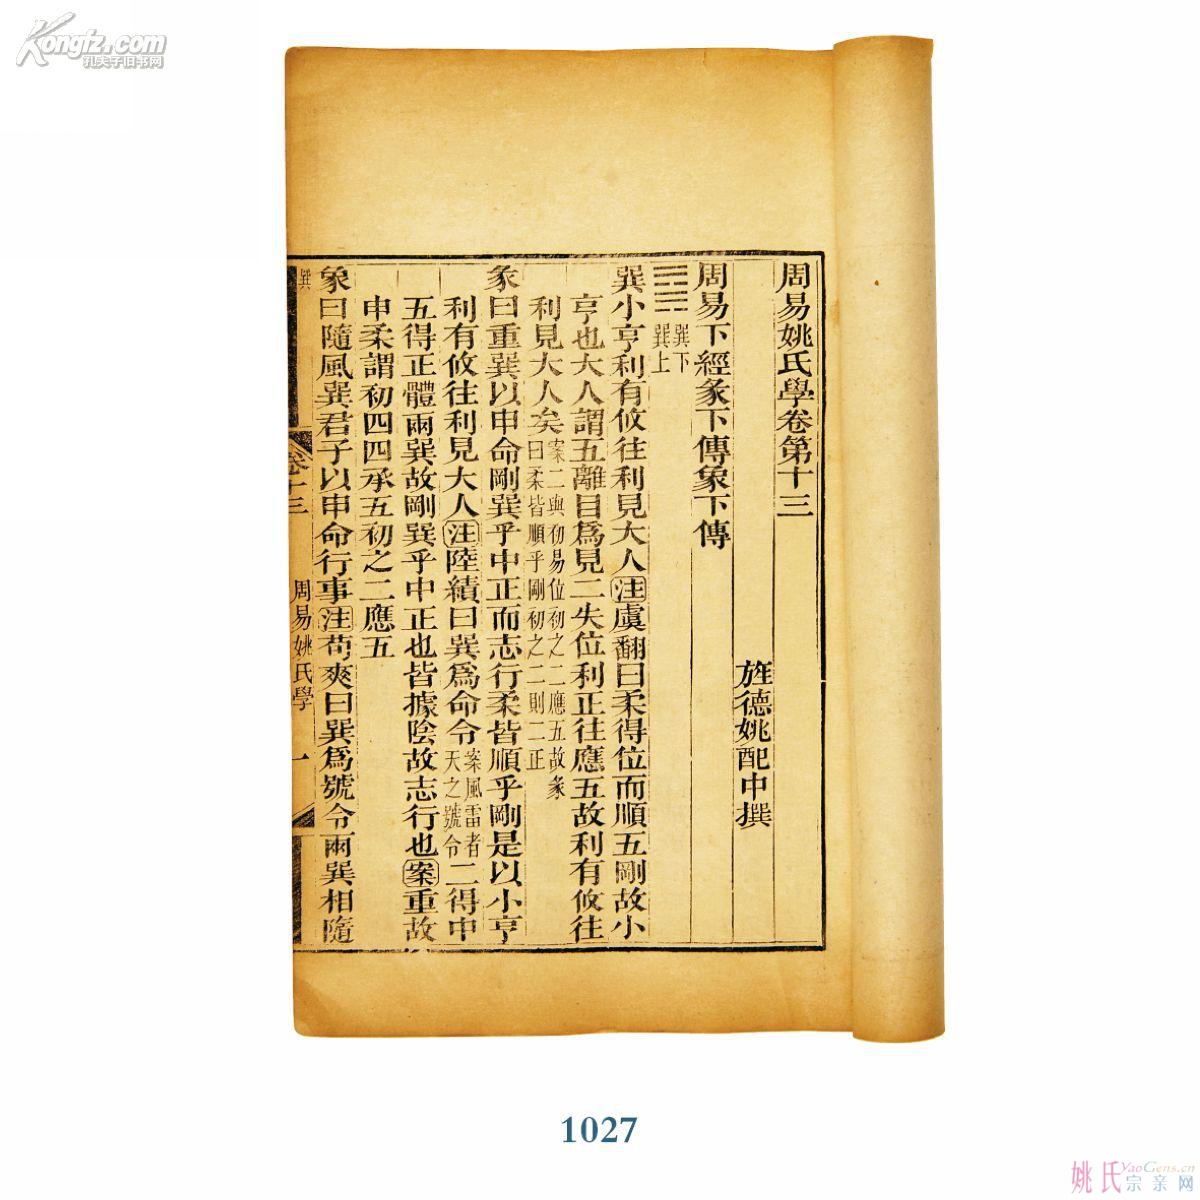 Kongfz.com
孔夫子旧书网
周易姚氏學卷第十三
旌德姚配中撰
周易下經彖下傳象下傳
巽下
巽上
巽小亨利有攸往利見大人注虞翻曰柔得位而順五剛故小
亨也大人謂五離目爲見二失位利正往應五故利有攸往
利見大人矣案二與初易位初之二應五故彖
曰柔皆順乎剛初之二則二正
彖曰重巽以申命剛巽乎中正而志行柔皆順乎剛是以小亨
利有攸往利見大人注陸績曰巽爲命令案風雷者
天之號令二得中
五得正體兩巽故剛巽乎中正也皆據陰故志行也案重故
申柔謂初四四承五初之二應五
象曰隨風巽君子以申命行事注荀爽曰巽爲號令兩巽相隨
巽
卷十三
周易姚氏學
一
1027
姚氏宗亲网
YaoGens.cn